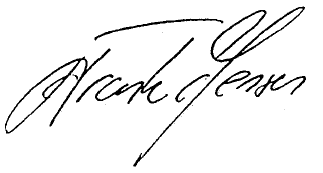 Frank Jensen